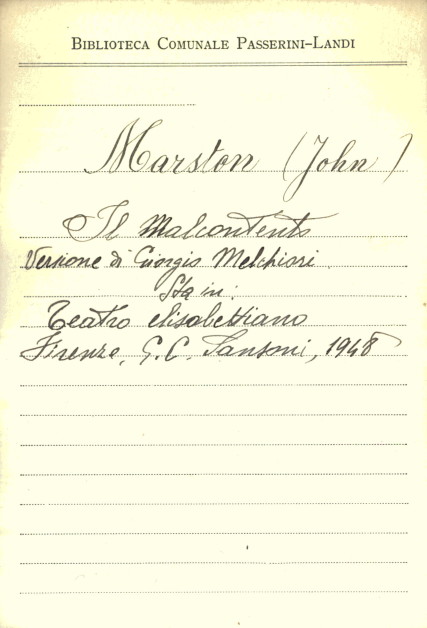 BIBLIOTECA COMUNALE PASSERINI-LANDI
Marston (John)
Il Malcontento
Versione di Giorgio Melchiori.
Sta in:
Teatro elisabettiano
Firenze, G. C. Sansoni, 1948